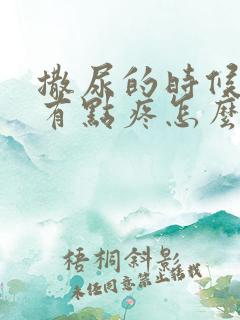 撒尿的時候
有點疼怎麼
梧桐斜影
未经同意禁止转载